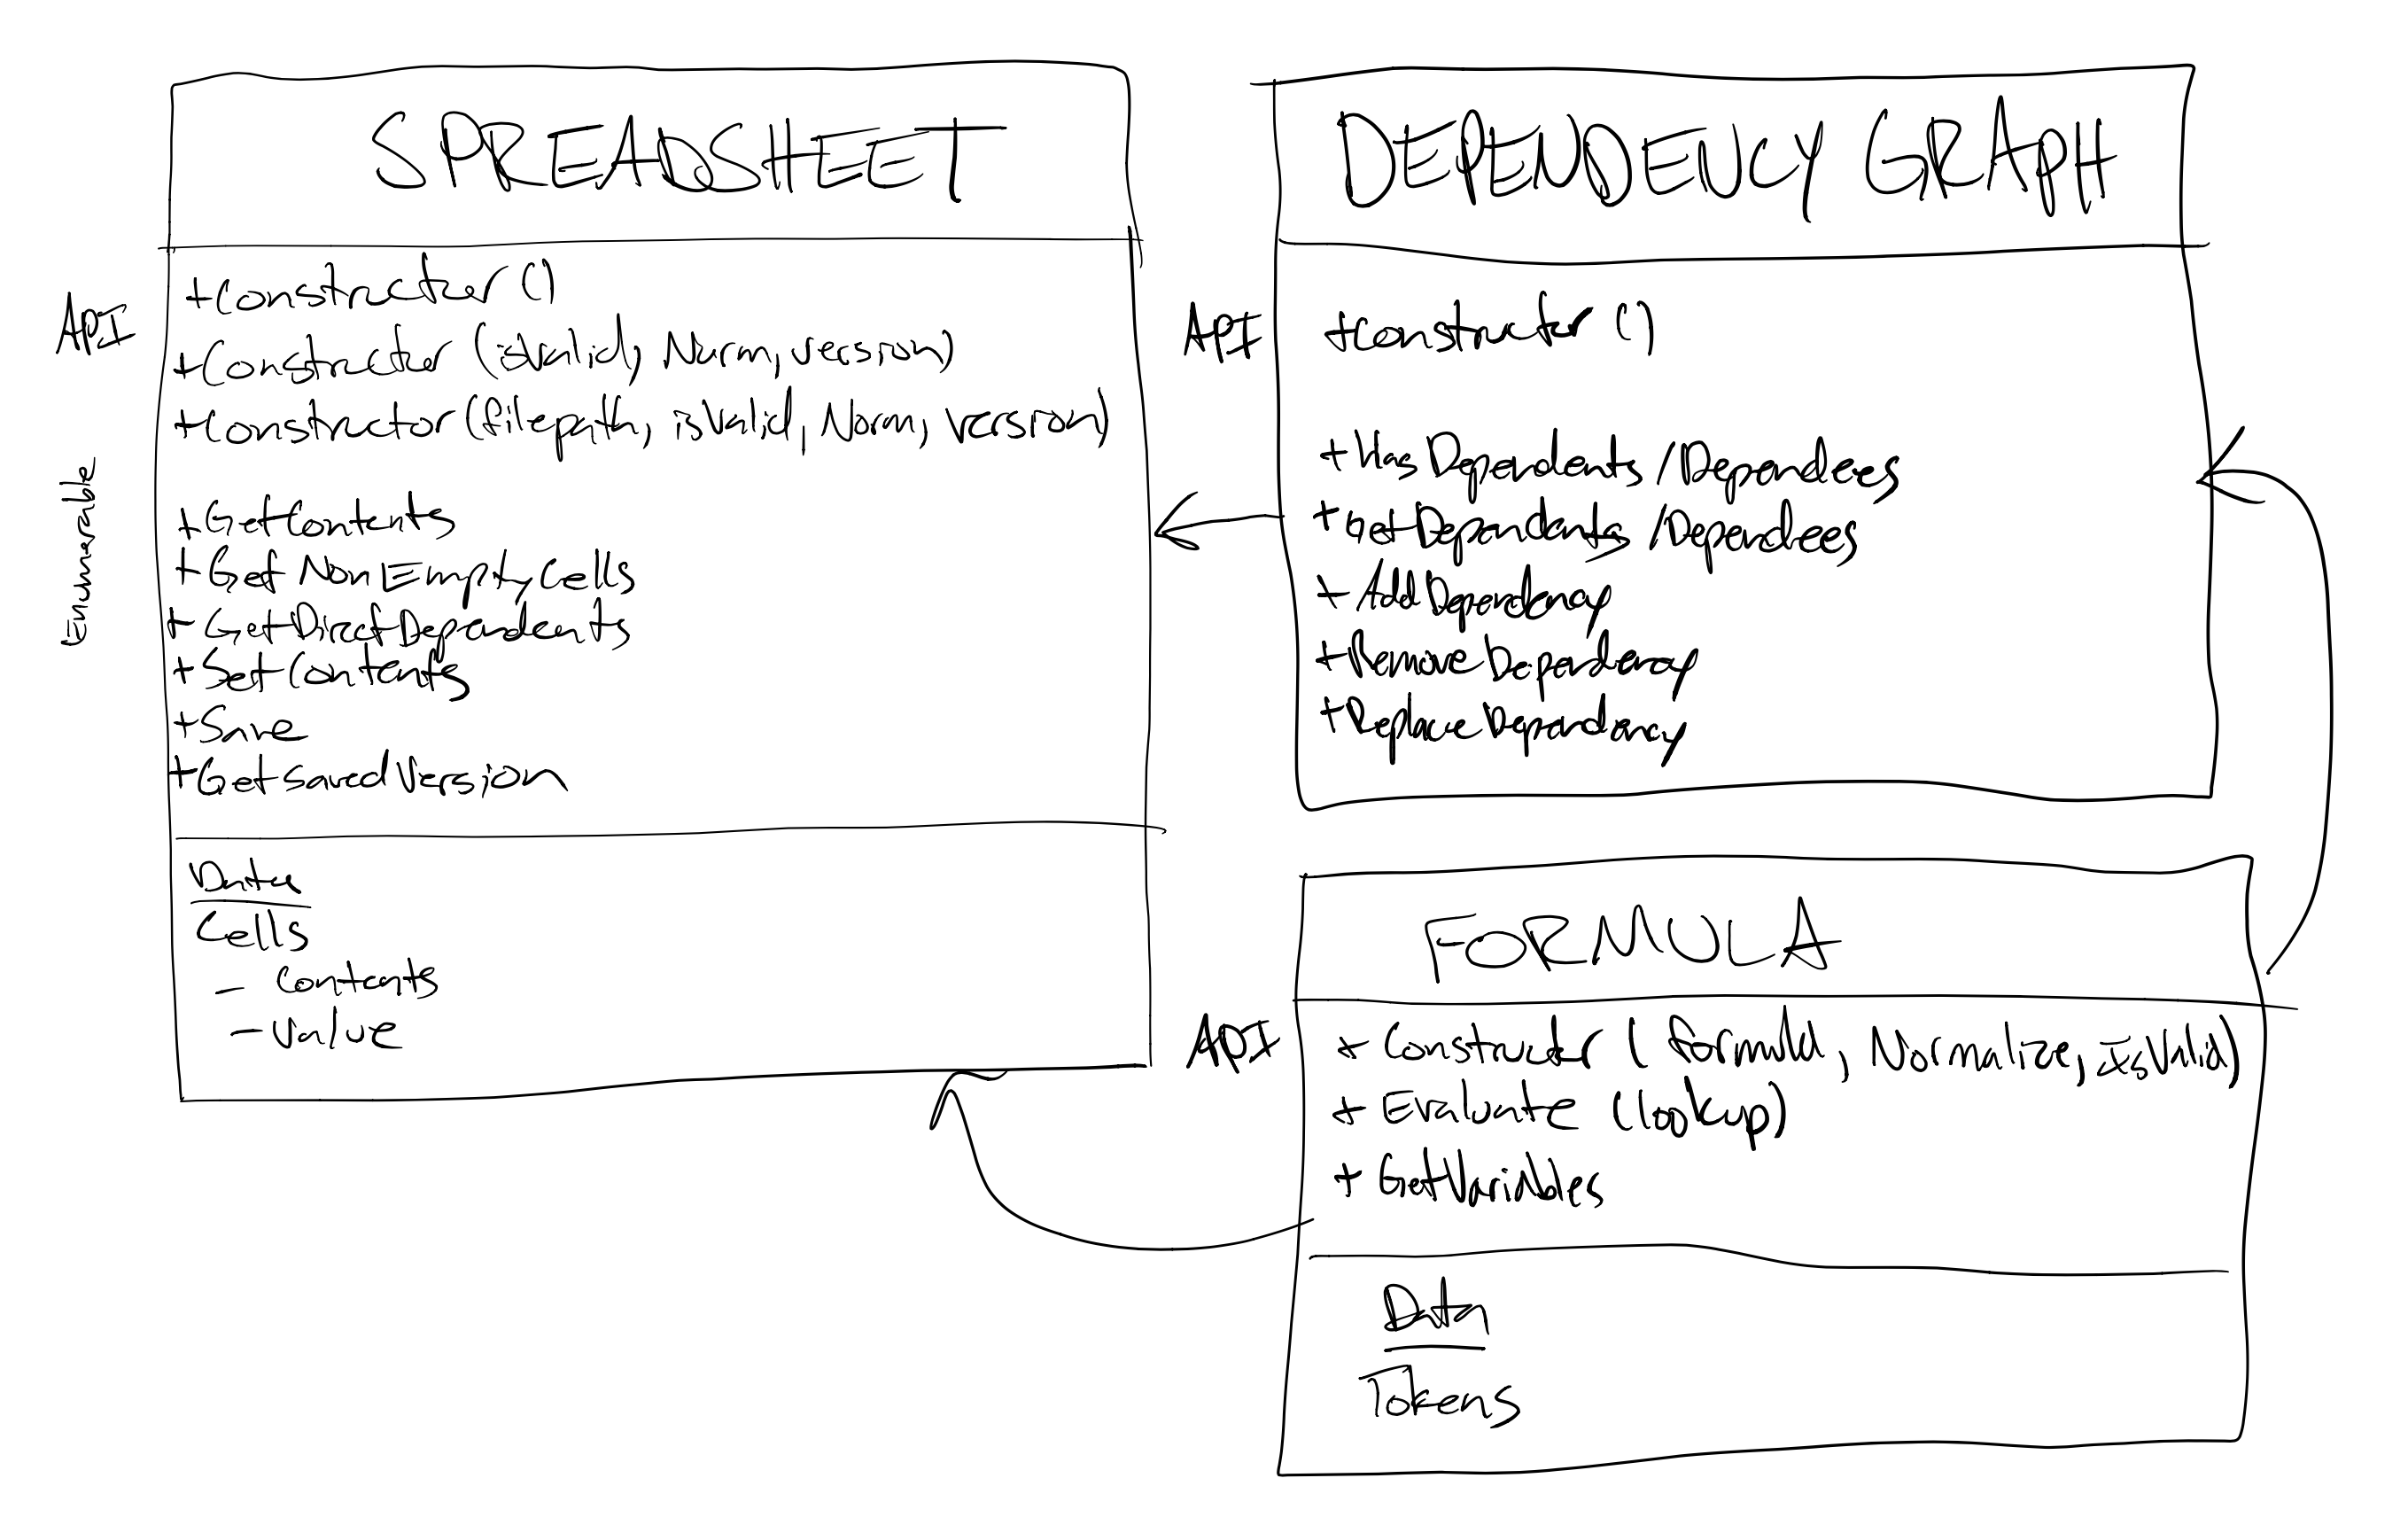 SPREADSHEET
API
+Constructor ()
+Constructor (isValid, Norm, version)
+Constructor (filepath, isValid, Norm, version)
Enumerable
+GetContents
+GetNonEmptyCells
+GetDirectDependents
+SetContents
+Save
+GetSavedVersion
Data
Cells
- Contents
- Value
DEPENDENCY GRAPH
API
+Constructor ()
+HasDependents /Dependees
+GetDependants /Dependees
+AddDependency
+RemoveDependency
+ReplaceDependency
FORMULA
API
+ Constructor (formula, Normalize, IsValid)
+ Evaluate (lookup)
+ GetVariables
Data
Tokens